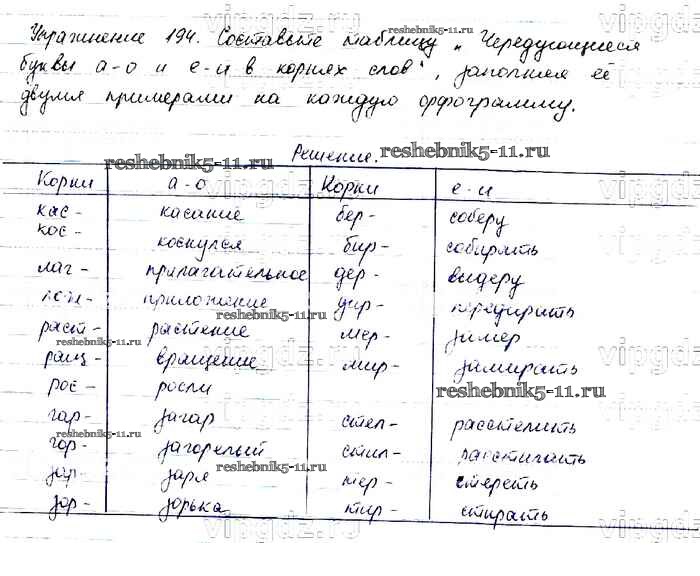 Упражнение 194. Составьте таблицу „Чередующиеся
буквы а-о и е-и в корнях слов", заполняя её
двумя примерами на каждую орфограмму.
Решение.
Корни а-о Корни е-и
кас- касание бер- соберу
кос- коснулся бир- собирать
лаг- прилагательное дер- выдеру
лож- приложение дир-
раст- растение мер- замер
ращ- вращение мир- замирать
рос- росли
гар- загар стел- расстелить
гор- загорелый стил-
зар- заря тер- стереть
зор- зорька тир- стирать
reshebnik5-11.ru
reshebnik5-11.ru
reshebnik5-11.ru
reshebnik5-11.ru
reshebnik5-11.ru
reshebnik5-11.ru
reshebnik5-11.ru
reshebnik5-11.ru
reshebnik5-11.ru
reshebnik5-11.ru
vipgdz.ru
vipgdz.ru
vipgdz.ru
vipgdz.ru